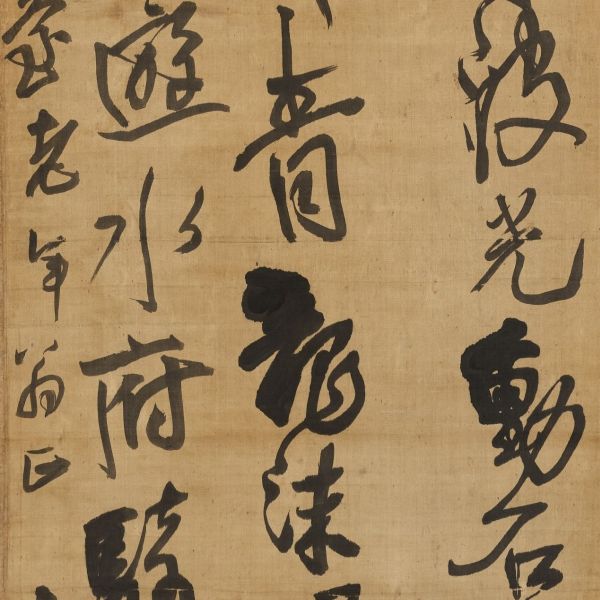 波光動石
青龍沫
遊水府騎
老年翁正